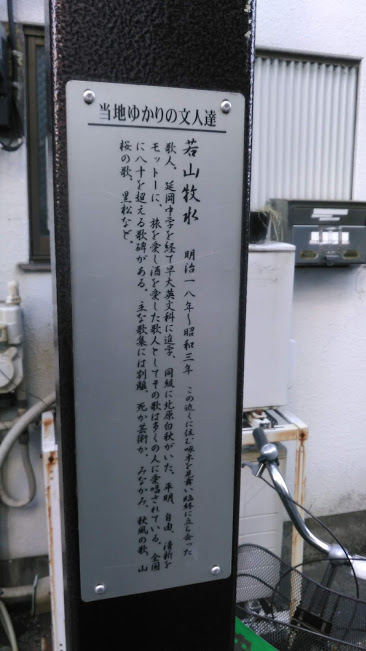 当地ゆかりの文人達
若山牧水　明治一八年〜昭和三年　この近くに住む啄木を見舞い臨終に立ち会った
歌人、延岡中学を経て早大英文科に進学、同級に北原白秋がいた。平明、自由、清新を
モットーに、旅を愛し酒を愛した歌人としてその歌は多くの人に愛唱されている。全国
に八十を超える歌碑がある。主な歌集には別離、死か芸術か、みなかみ、秋風の歌、山
桜の歌、黒松など。